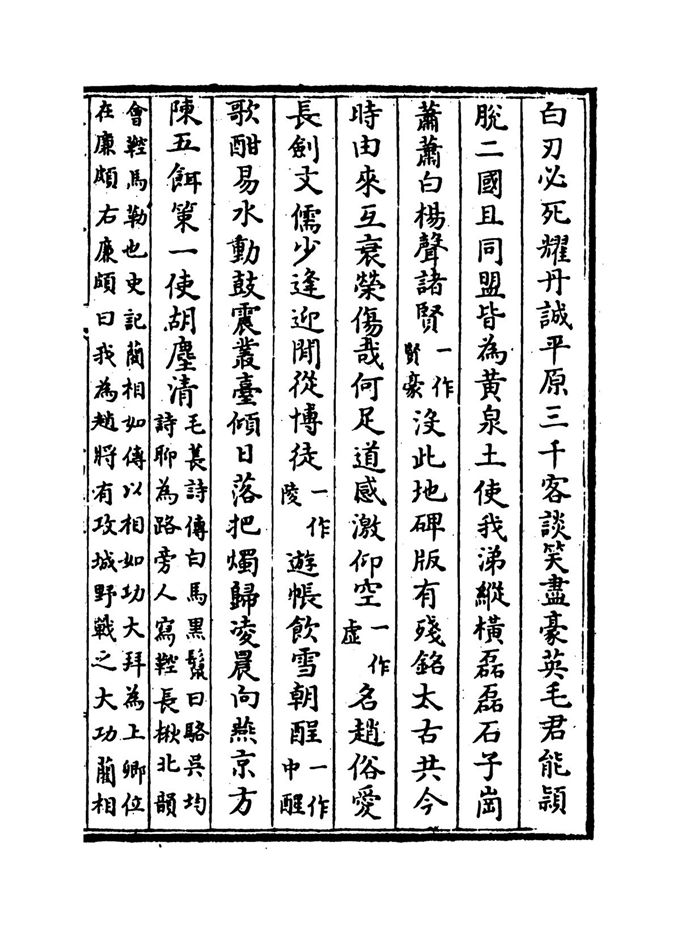 白刃必死耀丹誠平原三千客談笑盡豪英毛君能穎
脫二國且同盟皆為黃泉土使我涕縱橫磊磊石子崗
蕭蕭白楊聲諸賢一作賢豪沒此地碑版有殘銘太古共今
時由來互衰榮傷哉何足道感激仰空一作虛名趙俗愛
長劍文儒少逢迎閒從博徒一作陵遊帳飲雪朝酲一作中醒
歌酣易水動鼓震叢臺傾日落把燭歸凌晨向燕京方
陳五餌策一使胡塵清毛萇詩傳白馬黑鬛曰駱吳均
詩聊為路旁人寫鞚長楸北韻
會鞚馬勒也史記藺相如傳以相如功大拜為上卿位
在廉頗右廉頗曰我為趙將有攻城野戰之大功藺相